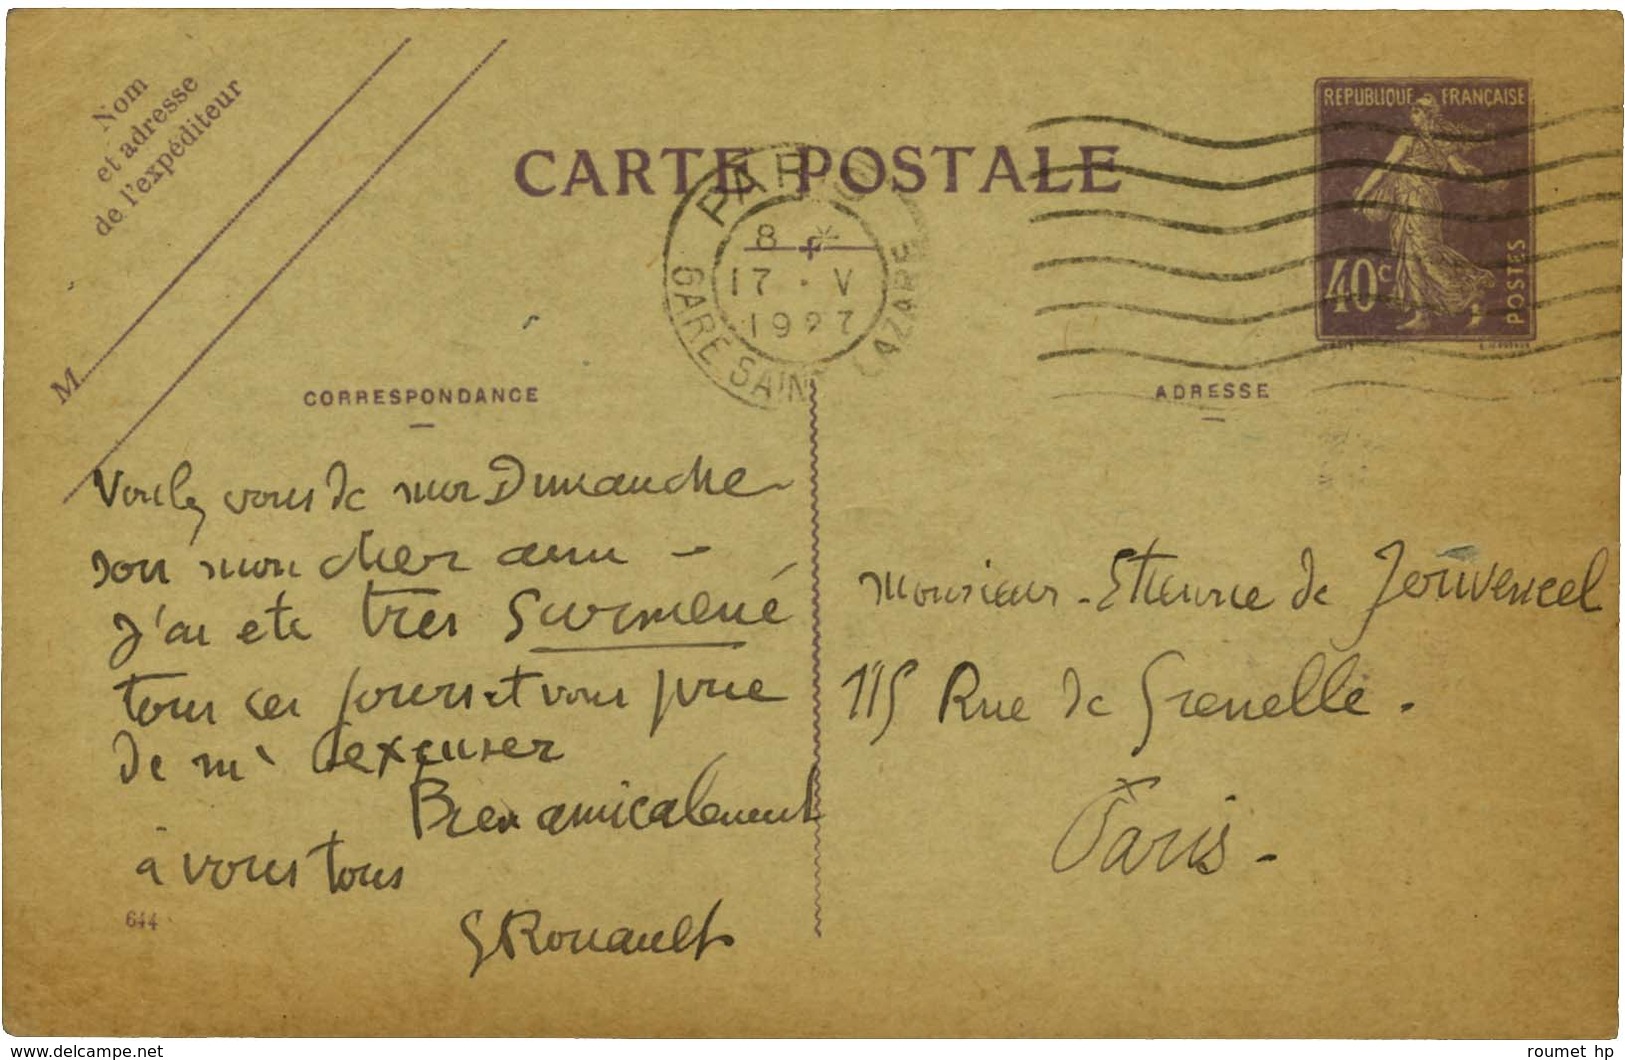 Nom
et adresse
de l'expéditeur
M
CARTE POSTALE
REPUBLIQUE FRANÇAISE
40c
POSTES
PARIS
GARE SAINT LAZARE
8 *
17 · V
1927
CORRESPONDANCE
ADRESSE
Voulez vous de mon Dimanche
soir mon cher ami –
J'ai ete tres surmené
tous ces jours et vous prie
de m'excuser
Bien amicalement
à vous tous
GRouault
644
Monsieur Etienne de Jouvencel
115 Rue de Grenelle.
Paris -
www.delcampe.net
roumet hp